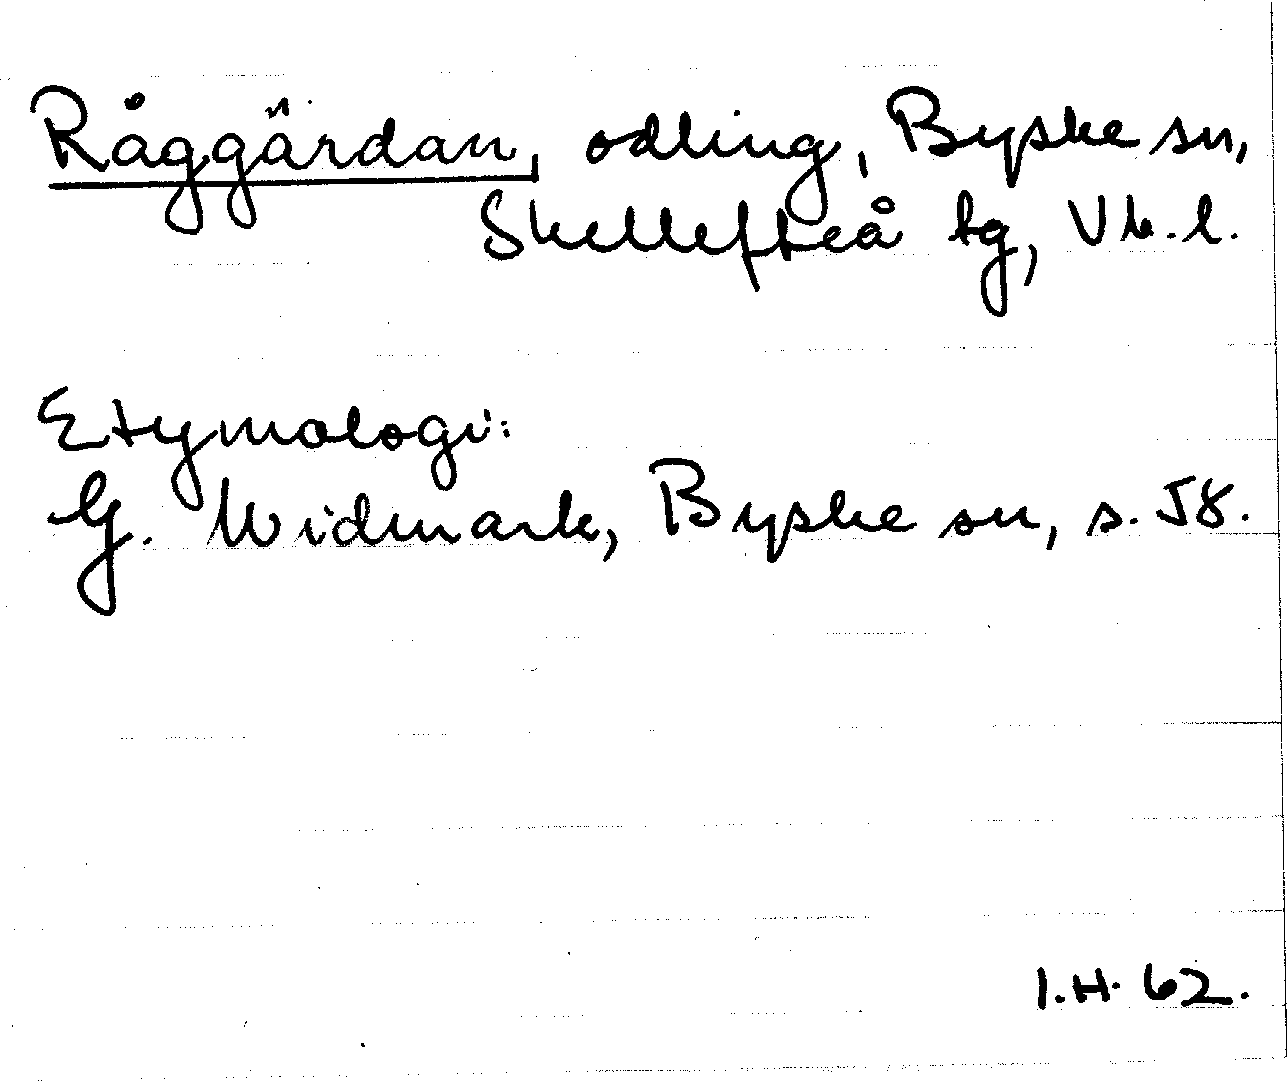 Råggärdan, odling, Byske sn,
Skellefteå tg, Vb.l.
Etymologi:
G. Widmark, Byske sn, s. 58.
I.H. 62.